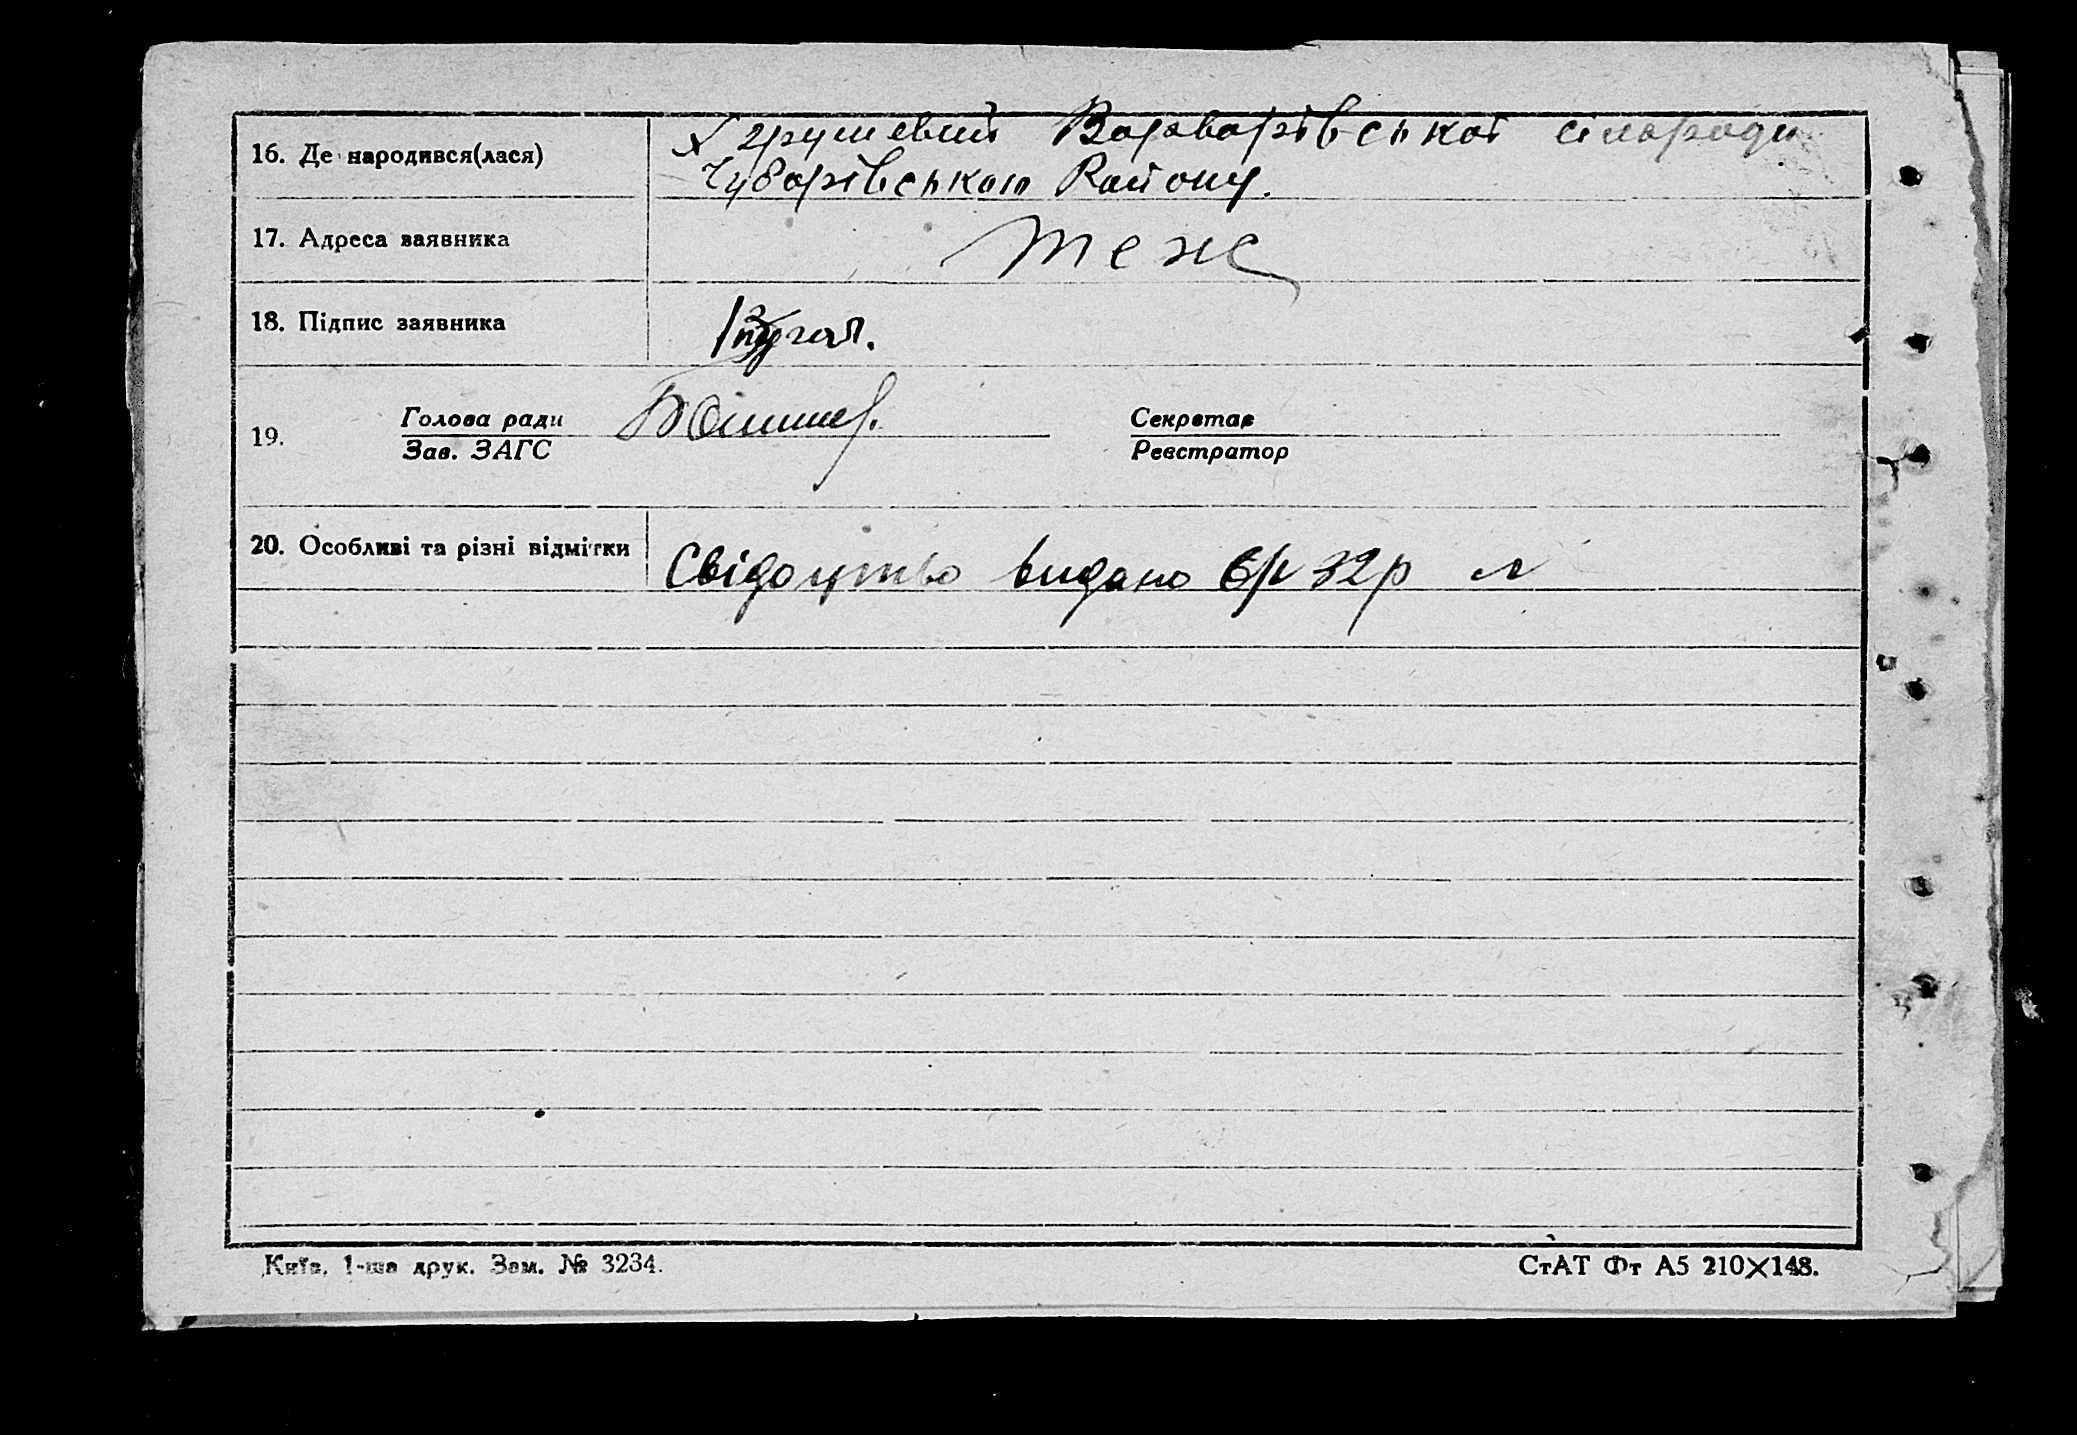 16. Де народився(лася) х Грушевий Варварівської сільради
Чубарівського Району.
17. Адреса заявника теж
18. Підпис заявника
19. Голова ради Секретар
Зав. ЗАГС Реєстратор
20. Особливі та різні відмітки Свідоцтво видано 32р
Київ, 1-ша друк. Зам. № 3234.
СтАТ Фт А5 210×148.